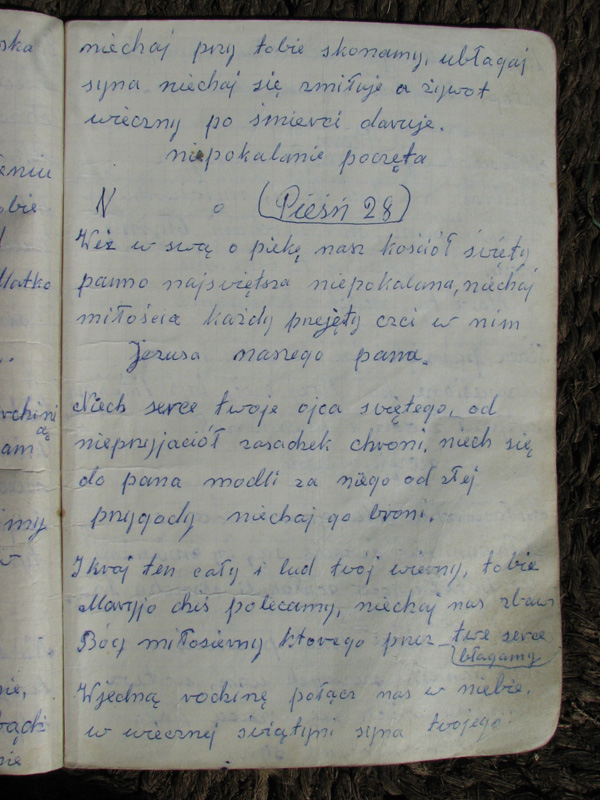 ska
eniu
obie
Matko
am
imy
sie,
bądź
niechaj przy tobie skonamy, ubłagaj
syna niechaj się zmiłuje a żywot
wieczny po śmierci daruje.
niepokalanie poczęta
N o (Pieśń 28)
Weź w swą o piekę nasz kościół święty
panno najświętsza niepokalana, niechaj
miłościa każdy prejęty czci w nim
Jezusa naszego pana.
Niech serce twoje ojca świętego, od
nieprzyjaciół zasadzek chroni, niech się
do pana modli za niego od złej
przygody niechaj go broni.
I kraj ten cały i lud twój wierny, tobie
Maryjo dziś polecamy, niechaj nas zbawi
Bóg miłosierny ktorego przez twe serce
błagamy
Wjedną rodzinę połącz nas w niebie.
w wiecznej świątyni syna twojego